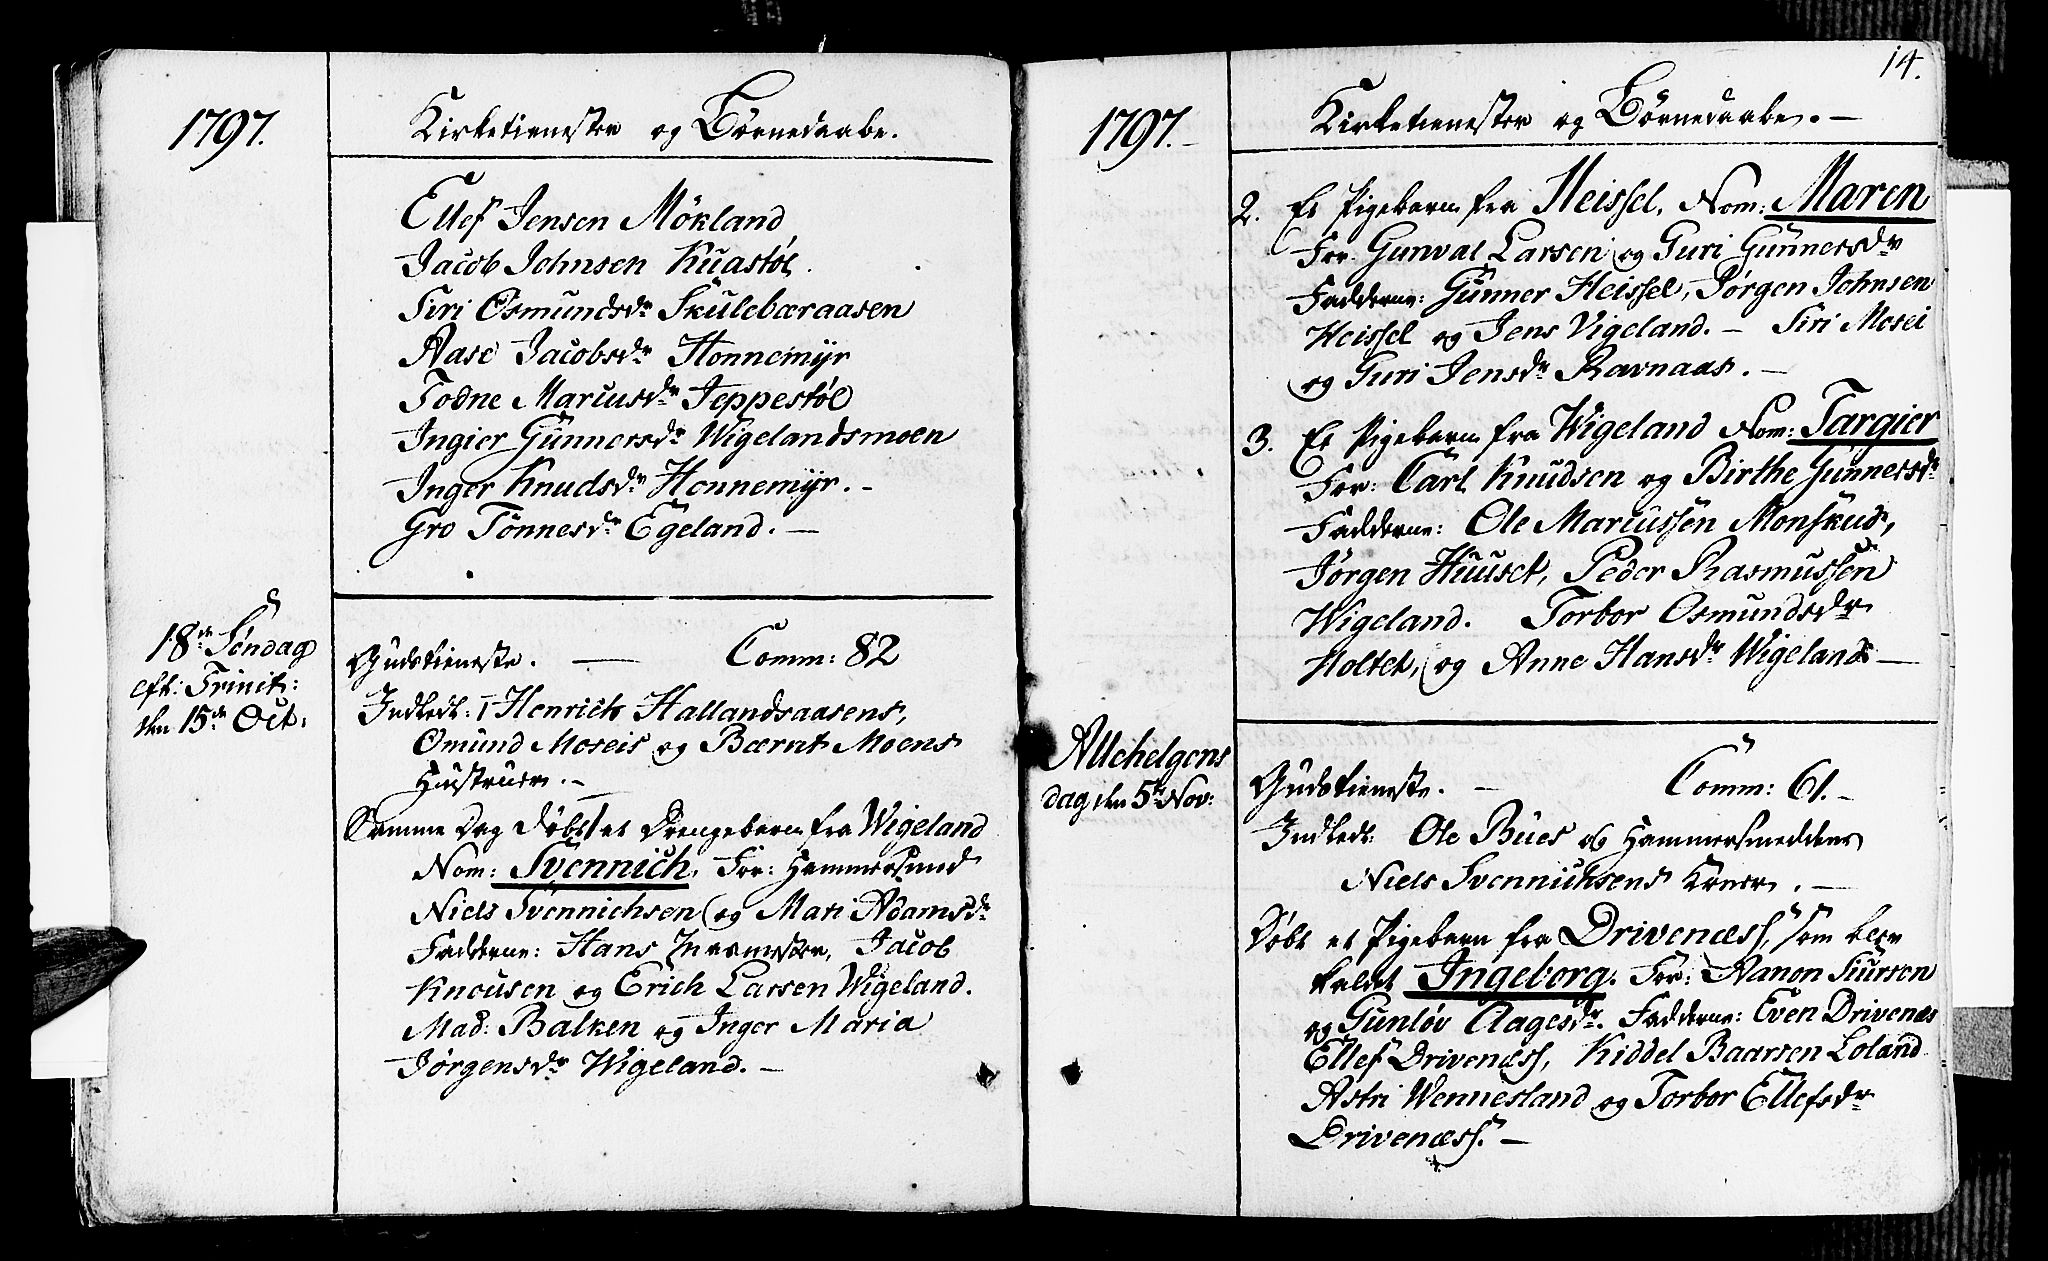 1797.
Kirketienester og Börnedaabe.
Ellef Jensen Mökland
Jacob Johnsen Kuastöl.
Siri Osmundsdr Skulebæraasen
Aase Jacobsdr Honnemyr
Todne Marcusdr Jeppestøl
Ingier Gunnersdr Wigelandsmoen
Inger Knudsdr Honnemÿr. -
Gro Tönnesdr Egeland. —
18de Søndag
eft: Trinit:
den 15de Oct:
Gudstieneste. — Comm: 82
Indledt: Henrich Hallandsaasens,
Omund Moseis og Bærnt Moens
Hustruer. -
Samme Dag døbt et Drengebarn fra Wigeland
Nom: Svennich. For: Hammersmed
Niels Svennichsen og Mari Adamsdr
Fadderne: Hans, Jacob
Knousen og Erich Larsen Wigeland.
Mad: Balken og Inger Maria
Jørgensdr Wigeland. -
14.
1797. -
Kirketienester og Börnedaabe. -
2. Et Pigebarn fra Heissel. Nom: Maren
For: Gunval Larsen og Guri Gunnersdr
Fadderne: Gunner Heissel, Jørgen Johnsen
Heissel og Jens Vigeland. - Siri Mosei
og Guri Jensdr Ravnaas. -
3. Et Pigebarn fra Wigeland Nom: Targier
For: Carl Knudsen og Birthe Gunnersdr
Fadderne: Ole Marcussen Monskus,
Jørgen Huuset, Peder Rasmussen
Wigeland. Torbor Osmundsdr
Holtet, og Anne Hansdr Wigeland —
Allehelgens
dag den 5te Nov:
Gudstieneste. - Comm: 61. -
Indledt: Ole Bues og Hammersmeddens
Niels Svennichsens Koner. -
Døbt et Pigebarn fra Drivenæss, som blev
kaldet Ingeborg. For: Aanon Siursen
og Gunløv Aagesdr. Fadderne: Even Drivenæs
Ellef Drivenæss, Kiddel Baarsen Loland
Astri Wennesland og Torbor Ellefsdr
Drivenæss. -